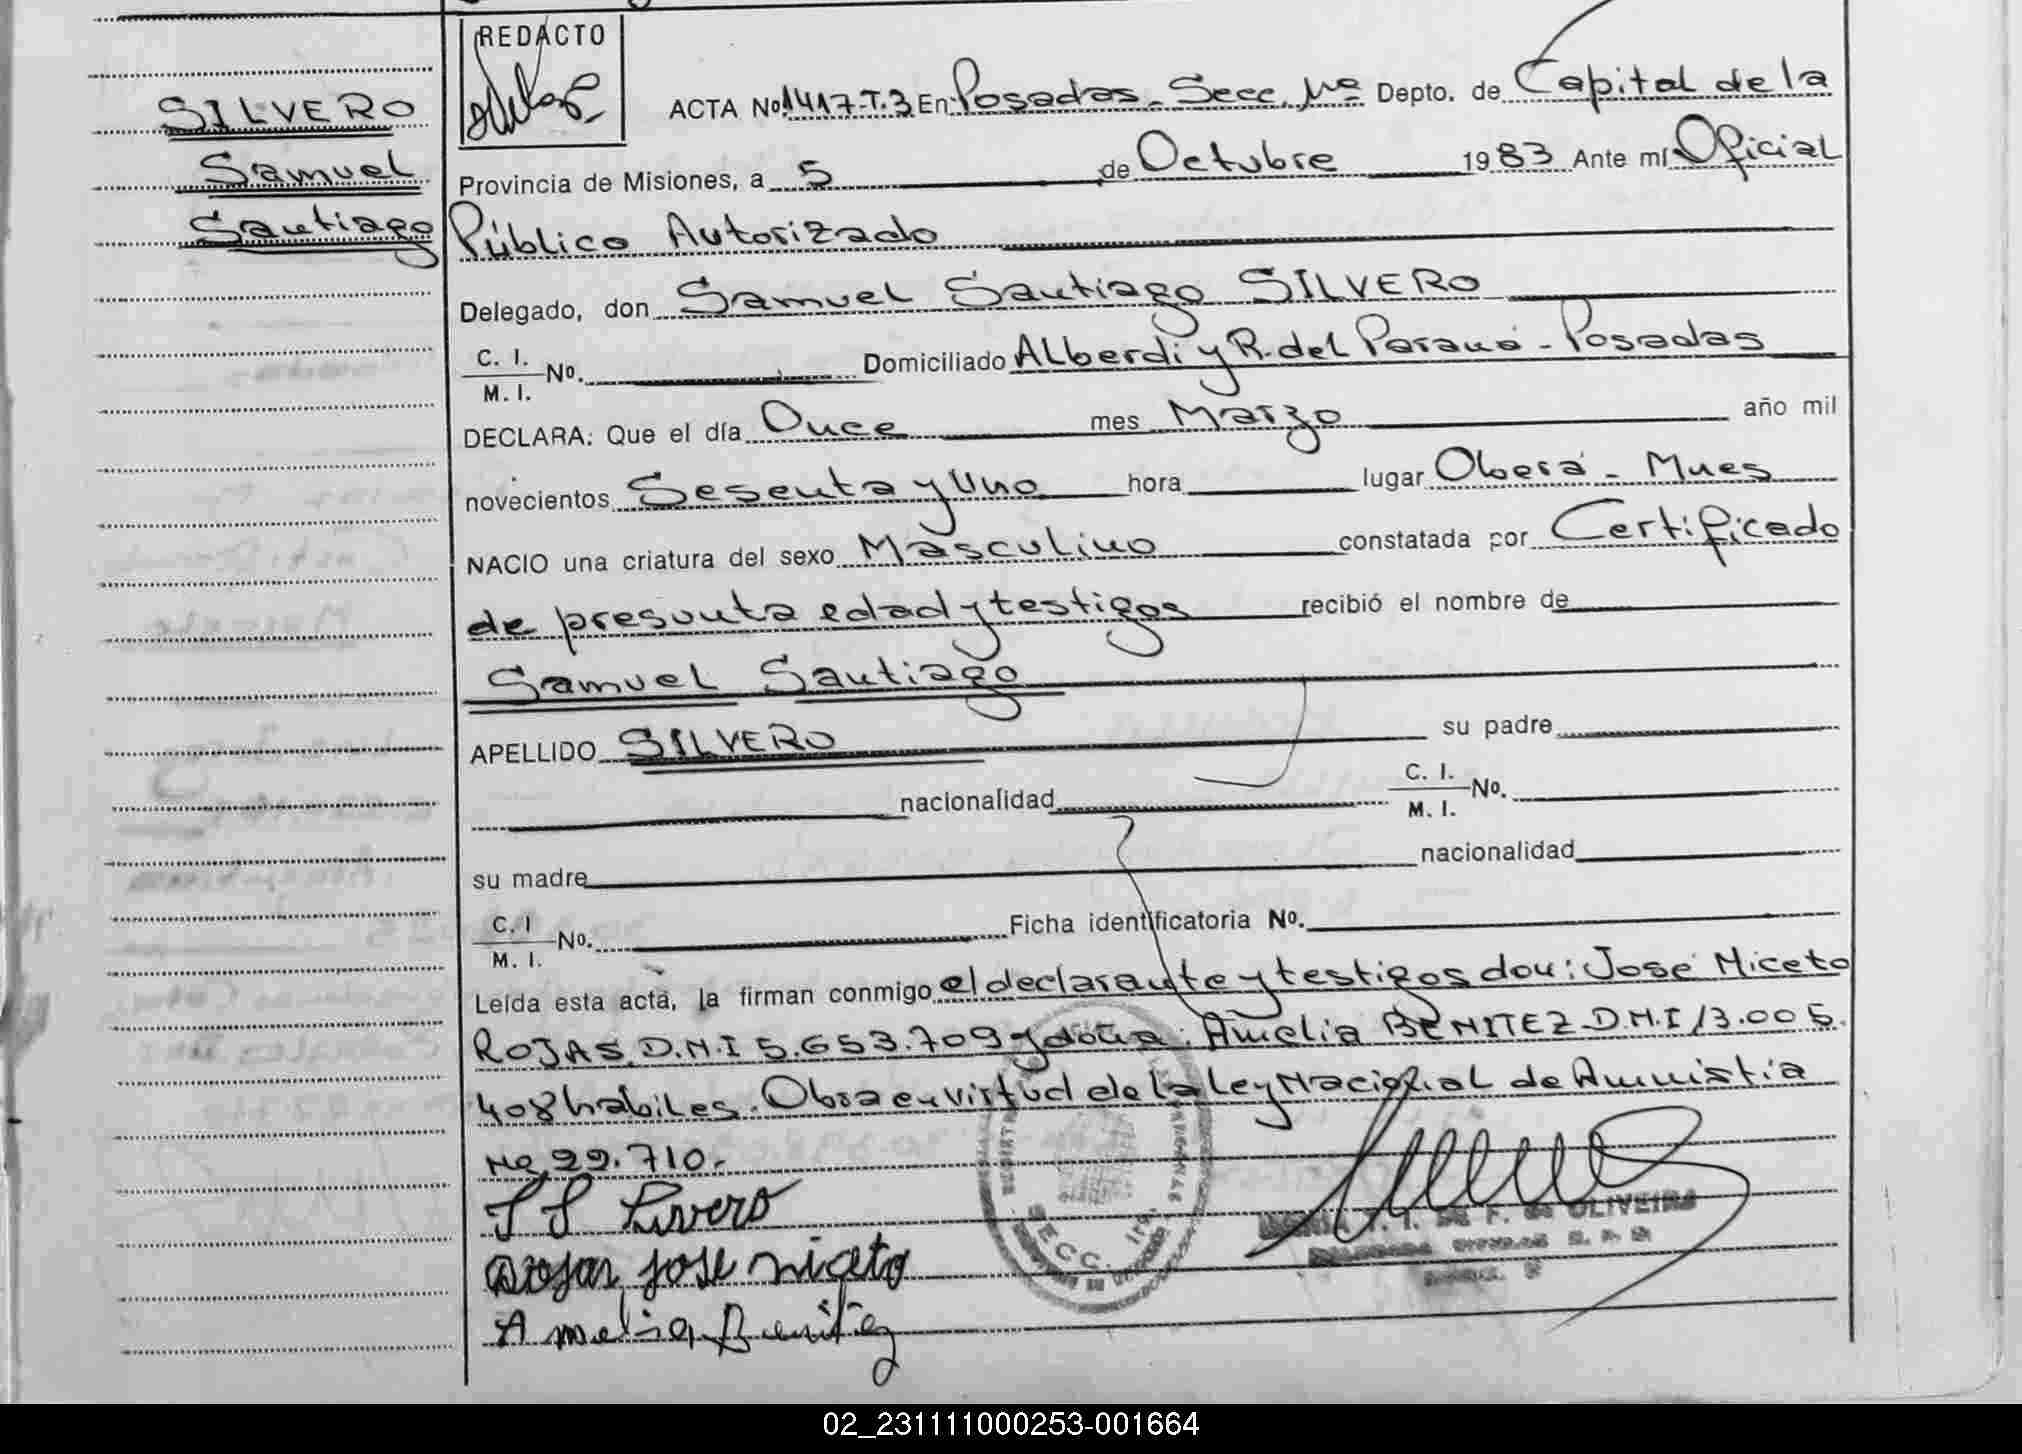 SILVERO
Samuel
Santiago
REDACTO
ACTA No. 1417-T.3 En Posadas - Secc. 1ra Depto. de Capital de la
Provincia de Misiones, a 5 de Octubre 1983 Ante mí Oficial
Público Autorizado
Delegado, don Samuel Santiago SILVERO
C. I. / M. I. No. Domiciliado Alberdi y R. del Paraná - Posadas
DECLARA: Que el día Once mes Marzo año mil
novecientos Sesenta y Uno hora lugar Oberá - Mnes
NACIO una criatura del sexo Masculino constatada por Certificado
de presunta edad y testigos recibió el nombre de
Samuel Santiago
APELLIDO SILVERO su padre
nacionalidad C. I. / M. I. No.
su madre nacionalidad
C. I / M. I. No. Ficha identificatoria No.
Leída esta acta, la firman conmigo el declarante y testigos don: José Niceto
ROJAS. D.N.I 5.653.709 y doña: Amelia BENITEZ D.N.I 13.005.
408 habiles. Obra en virtud de la Ley Nacional de Amnistia
No 22.710.-
S S Livero
Rojas jose niceto
Amelia Benitez
SECC.
T. I. DE F. de OLIVEIRA
02_231111000253-001664